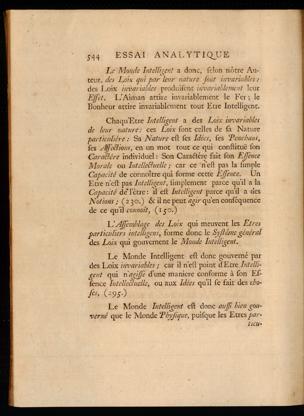 544 ESSAI ANALYTIQUE
Le Monde Intelligent a donc, selon nôtre Au-
teur, des Loix qui par leur nature sont invariables:
des Loix invariables produisent invariablement leur
Effet. L'Aiman attire invariablement le Fer; le
Bonheur attire invariablement tout Etre Intelligent.
Chaqu'Etre Intelligent a des Loix invariables
de leur nature: ces Loix sont celles de sa Nature
particulière: Sa Nature est ses Idées, ses Penchans,
ses Affections, en un mot tout ce qui constitue son
Caractère individuel: Son Caractère fait son Essence
Morale ou Intellectuelle; car ce n'est pas la simple
Capacité de connoître qui forme cette Essence. Un
Etre n'est pas Intelligent, simplement parce qu'il a la
Capacité de l'être: il est Intelligent parce qu'il a des
Notions; (230.) & il ne peut agir qu'en conséquence
de ce qu'il connoit, (150.)
L'Assemblage des Loix qui meuvent les Etres
particuliers intelligens, forme donc le Système général
des Loix qui gouvernent le Monde Intelligent.
Le Monde Intelligent est donc gouverné par
des Loix invariables; car il n'est point d'Etre Intelli-
gent qui n'agisse d'une manière conforme à son Es-
sence Intellectuelle, ou aux Idées qu'il se fait des cho-
ses, (295.)
Le Monde Intelligent est donc aussi bien gou-
verné que le Monde Physique, puisque les Etres par-
ticu-